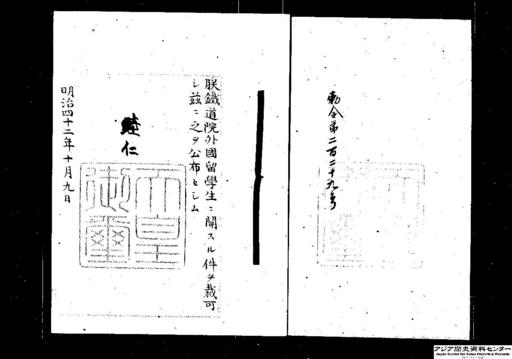 勅令第二百二十九号
朕鐵道院外國留學生ニ關スル件ヲ裁可
シ茲ニ之ヲ公布セシム
睦仁
天皇御璽
明治四十二年十月九日
アジア歴史資料センター
Japan Center for Asian Historical Records